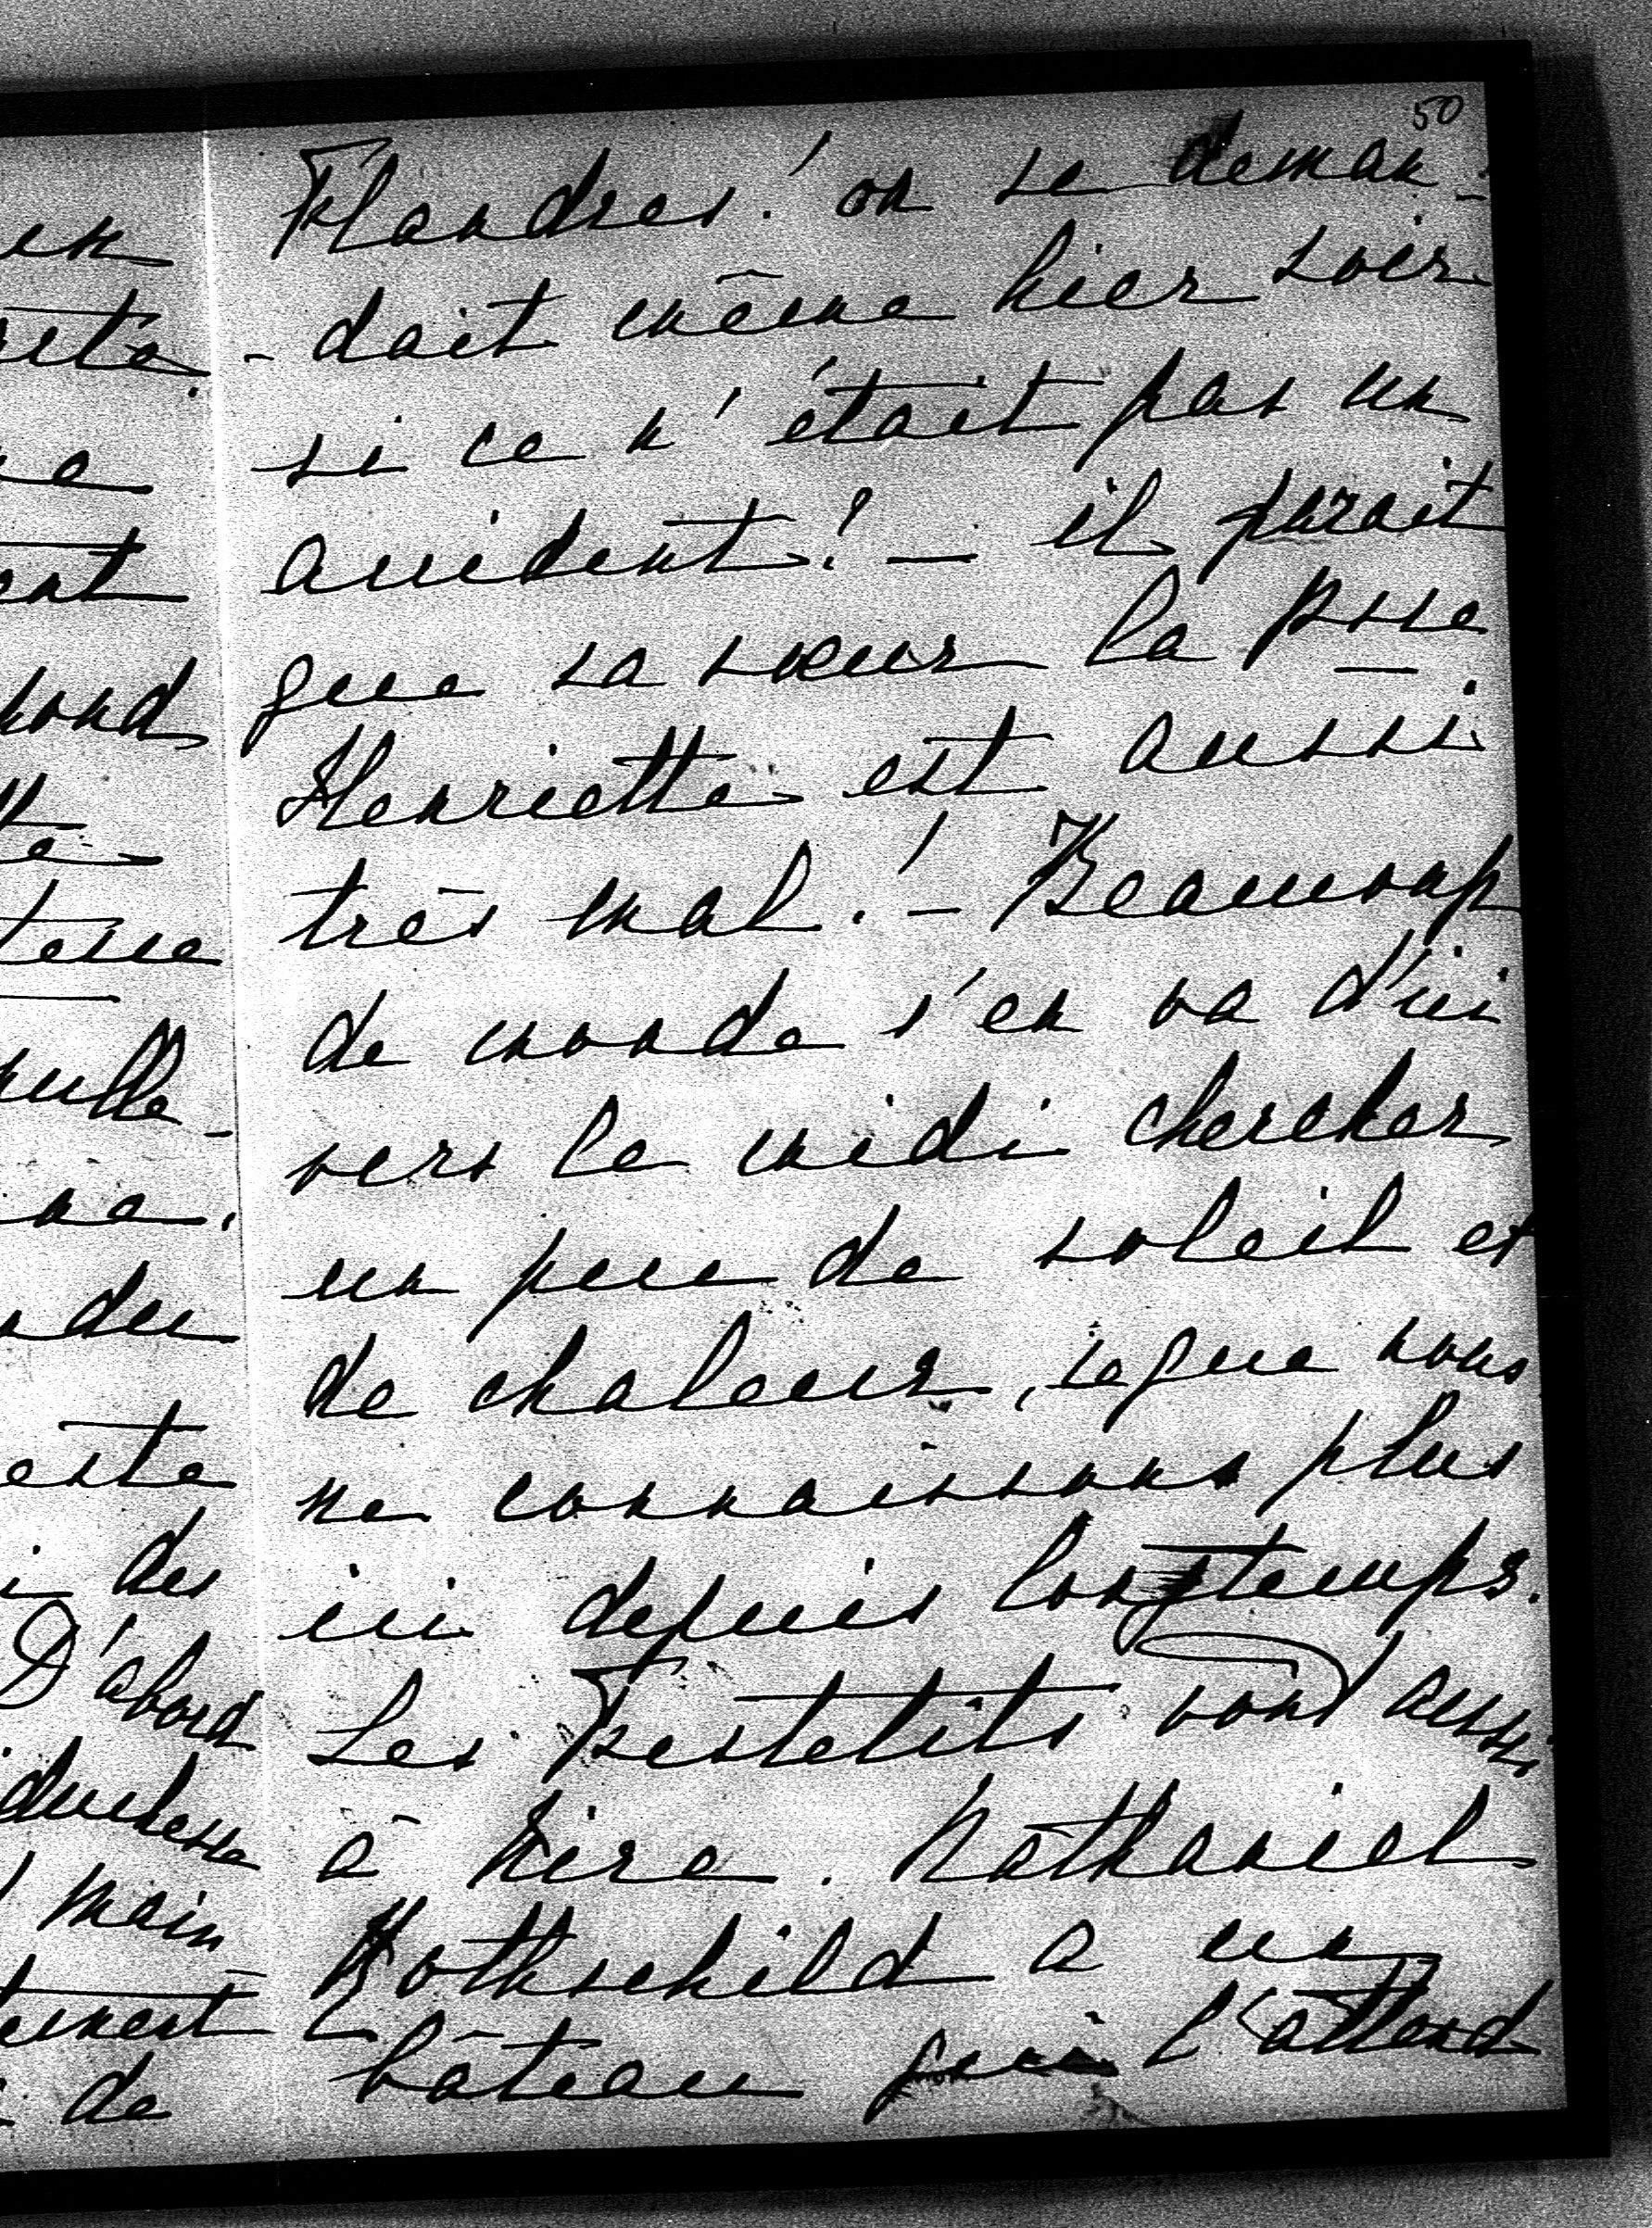 50
Flandres! on se deman-
-dait même hier soir
si ce n'était pas un
accident! — il parait
que sa sœur la Psse
Henriette est aussi
très mal! — Beaucoup
de monde s'en va d'ici
vers le midi chercher
un peu de soleil et
de chaleur, ce que nous
ne connaissons plus
ici depuis longtemps.
Les Festetits vont aussi
à Nice. Nathaniel
Rothschild a un
bâteau qui l'attend